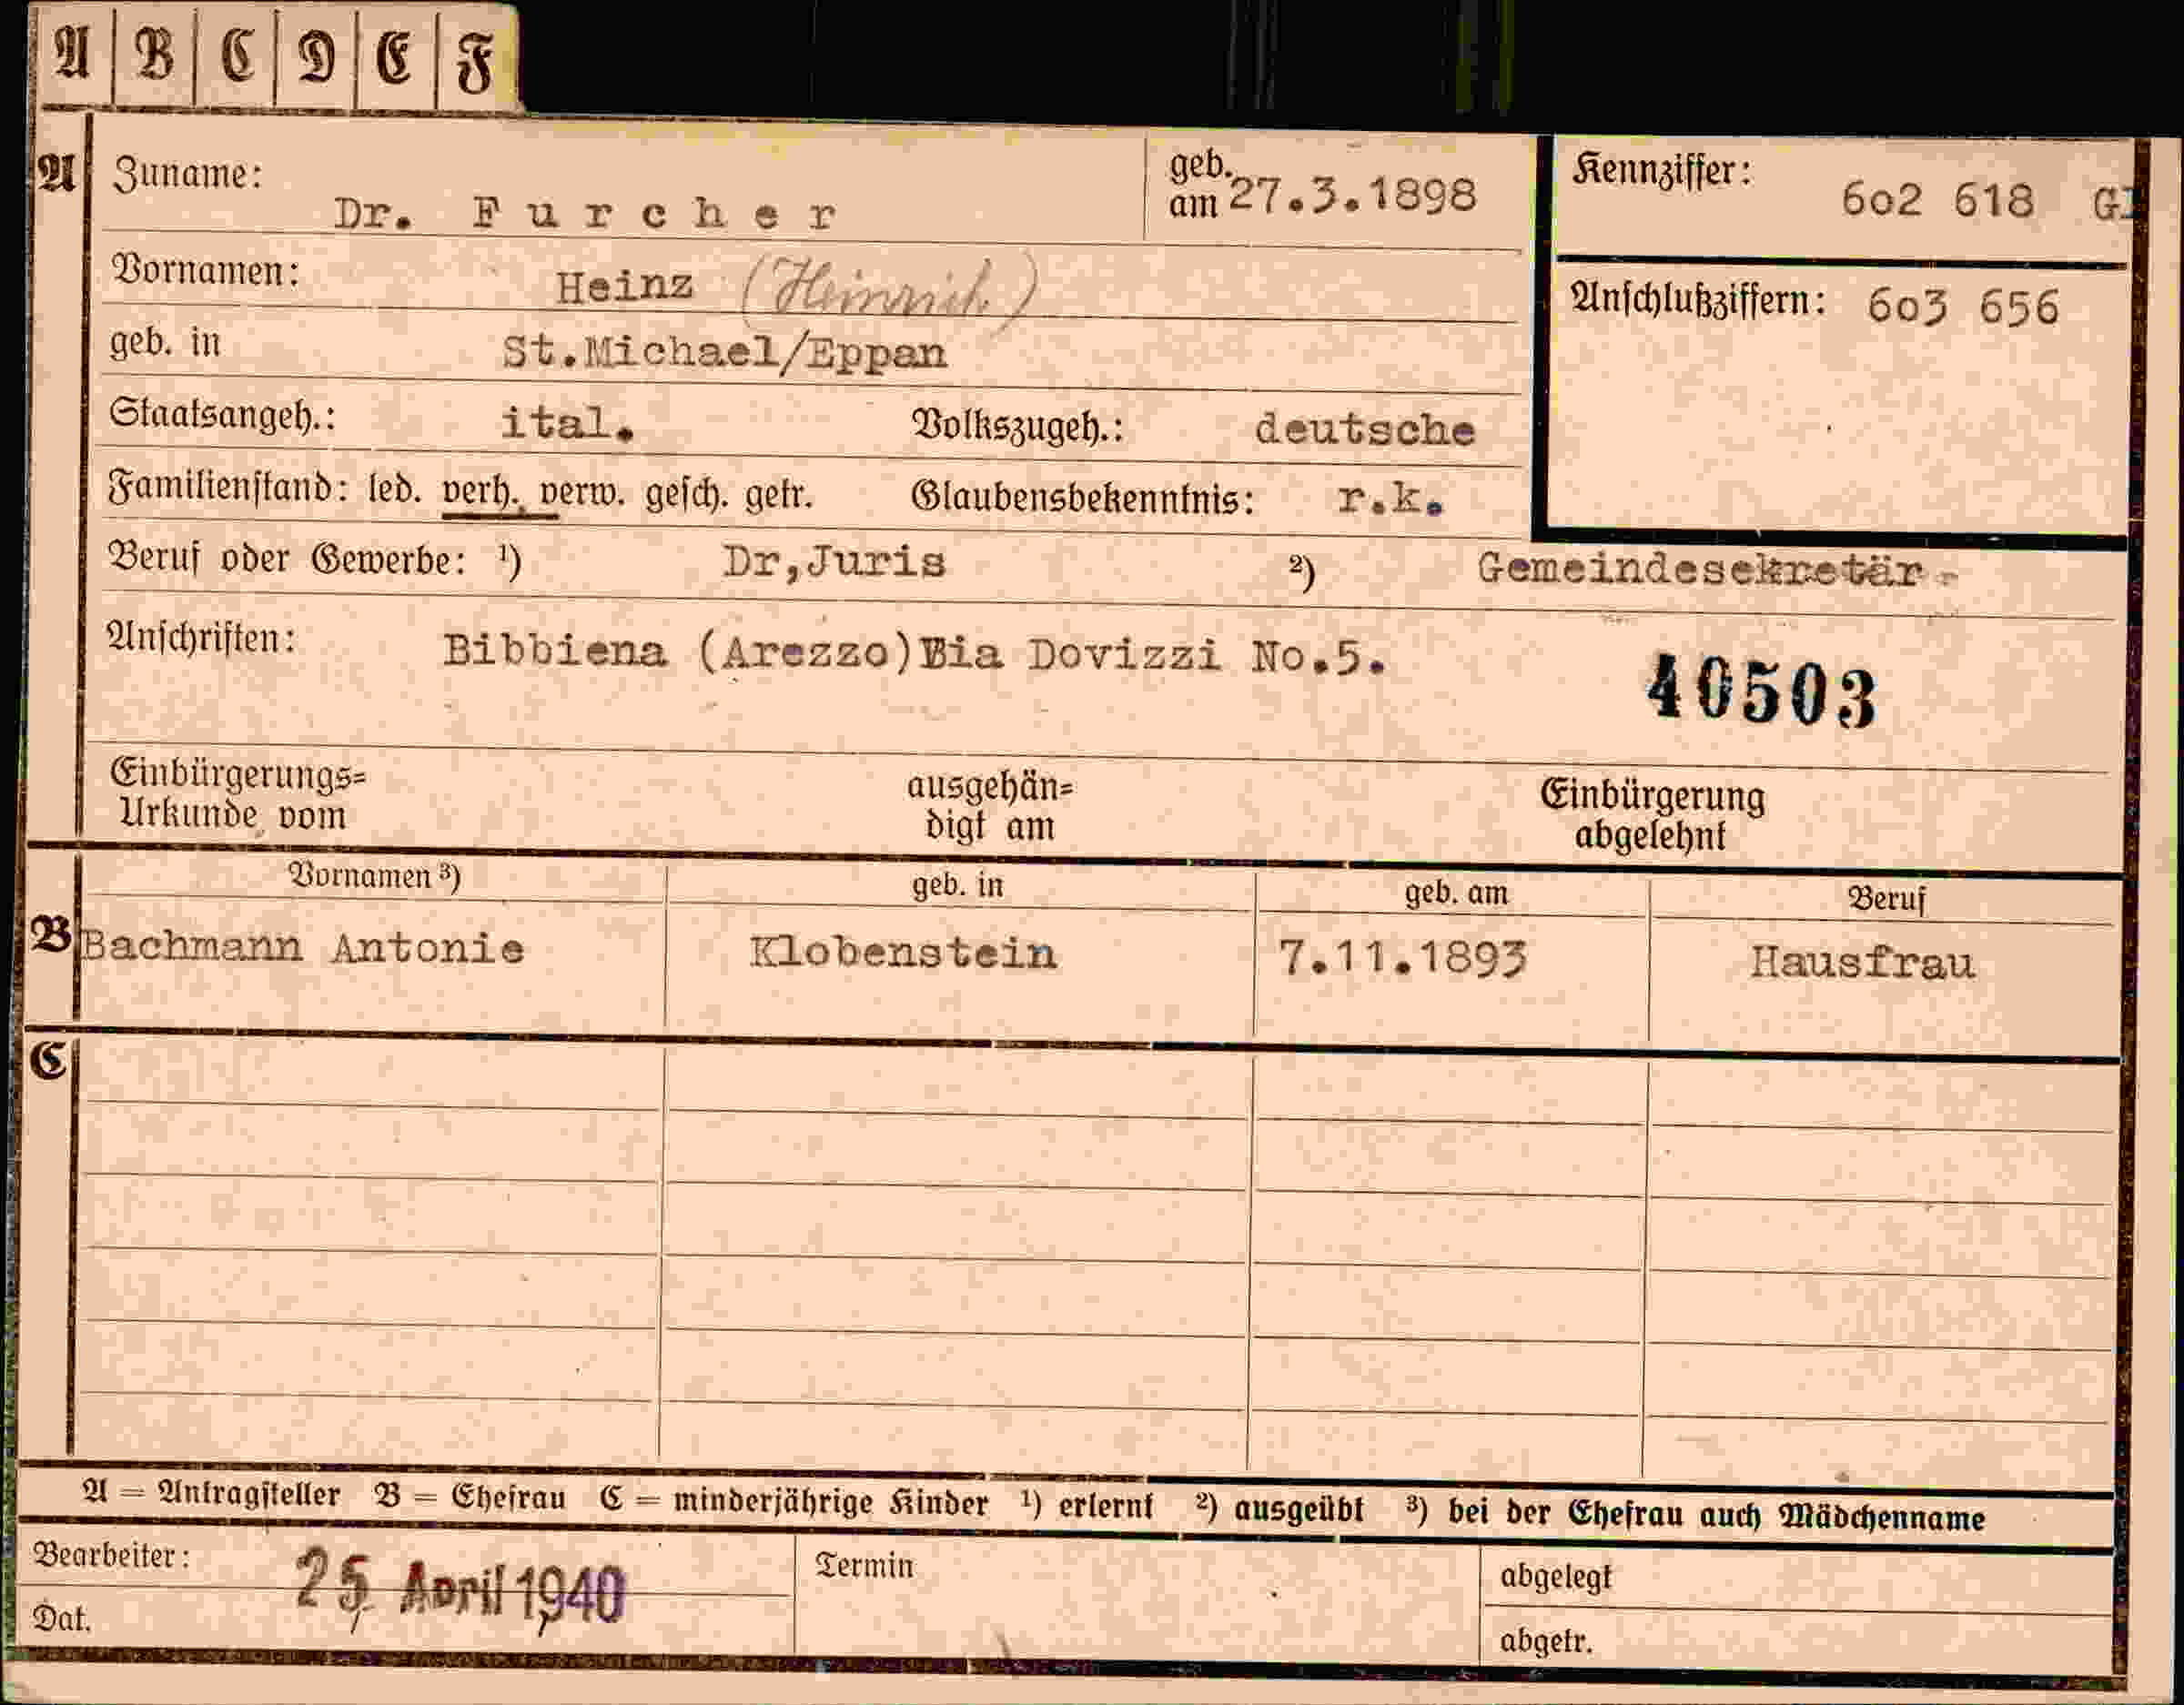 A B C D E F
A Zuname: Dr. Furcher geb. am 27.3.1898 Kennziffer: 602 618
Vornamen: Heinz (Heinrich)
Anschlußziffern: 603 656
geb. in St.Michael/Eppan
Staatsangeh.: ital. Volkszugeh.: deutsche
Familienstand: led. verh. verw. gesch. getr. Glaubensbekenntnis: r.k.
Beruf oder Gewerbe: ¹) Dr,Juris ²) Gemeindesekretär
Anschriften: Bibbiena (Arezzo) Via Dovizzi No.5.
40503
Einbürgerungs= ausgehän= Einbürgerung
Urkunde vom digt am abgelehnt
Vornamen ³) geb. in geb. am Beruf
B Bachmann Antonie Klobenstein 7.11.1893 Hausfrau
C
A = Antragsteller B = Ehefrau C = minderjährige Kinder ¹) erlernt ²) ausgeübt ³) bei der Ehefrau auch Mädchenname
Bearbeiter: 25. April 1940 Termin abgelegt
Dat. abgetr.